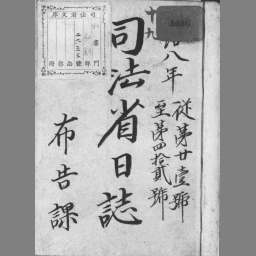 十九
八年
従第廿壹號
至第四拾貳號
司法省日誌
布告課
司法省文庫